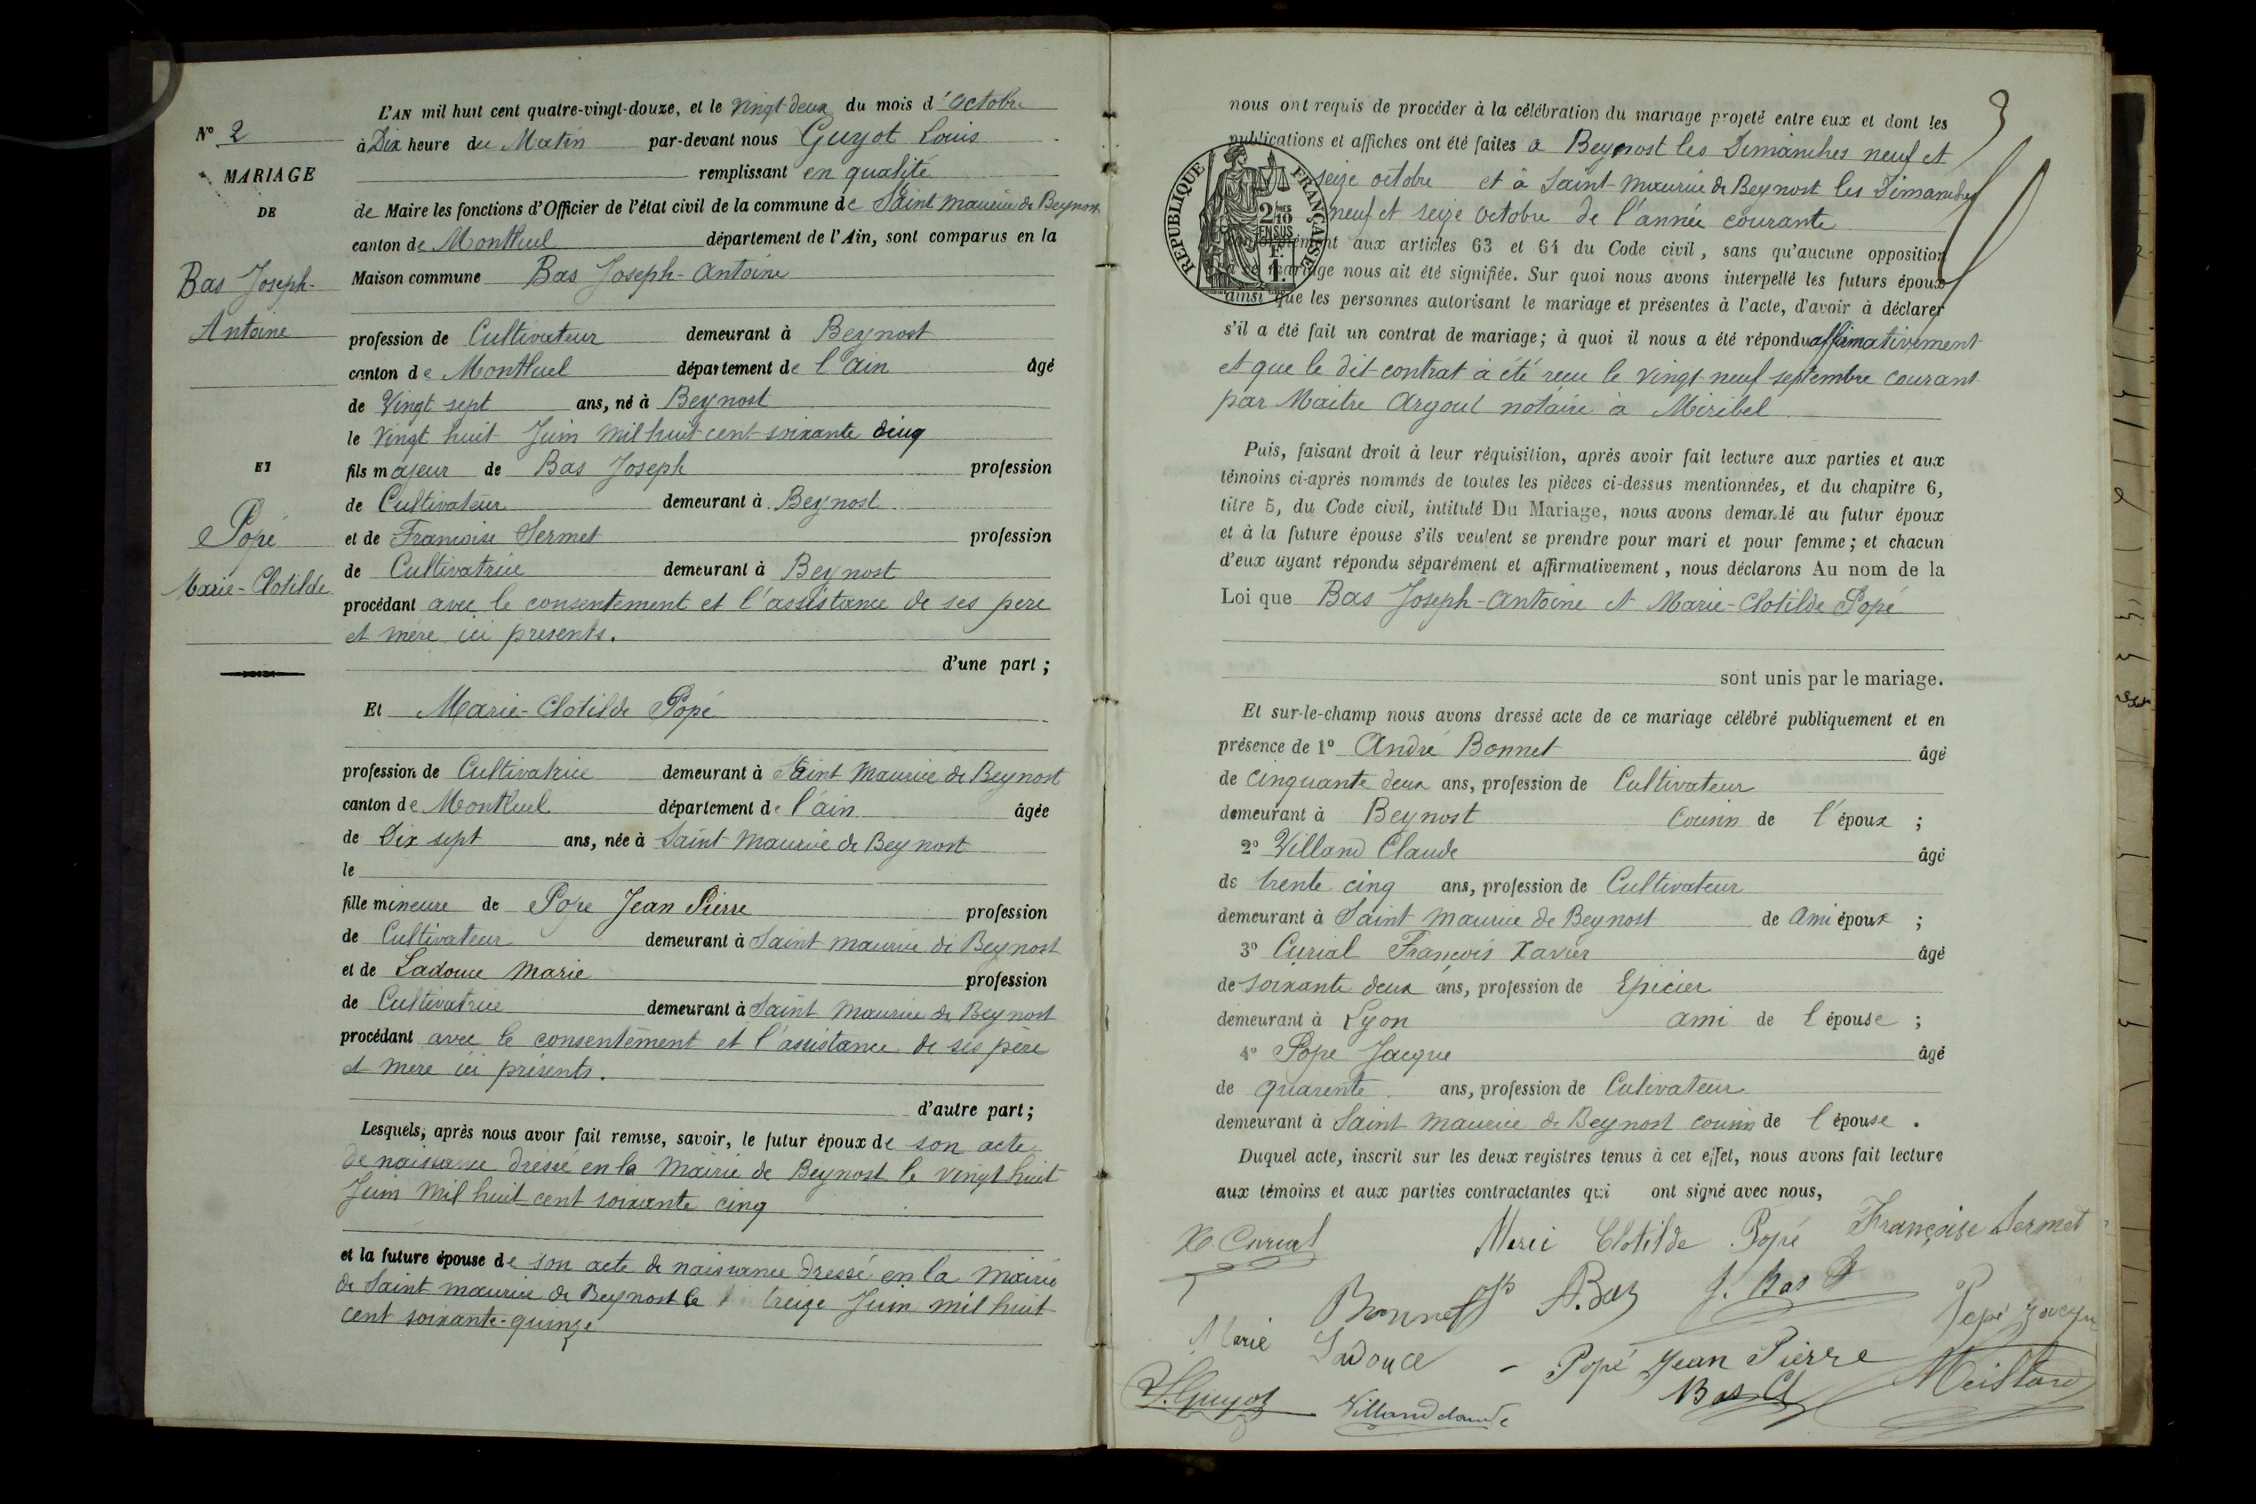 N° 2
MARIAGE
DE
Bas Joseph-
Antoine
ET
Popé
Marie-Clotilde
L'AN mil huit cent quatre-vingt-douze, et le vingt-deux du mois d'octobre
à Dix heure du Matin par-devant nous Guyot Louis
remplissant en qualité
de Maire les fonctions d'Officier de l'état civil de la commune de Saint Maurice de Beynost
canton de Montluel département de l'Ain, sont comparus en la
Maison commune Bas Joseph-Antoine
profession de Cultivateur demeurant à Beynost
canton de Montluel département de l'ain âgé
de Vingt sept ans, né à Beynost
le Vingt huit Juin mil huit cent soixante cinq
fils majeur de Bas Joseph profession
de Cultivateur demeurant à Beynost
et de Francoise Sermet profession
de Cultivatrice demeurant à Beynost
procédant avec le consentement et l'assistance de ses père
et mère ici présents.
d'une part ;
Et Marie-Clotilde Popé
profession de Cultivatrice demeurant à Saint Maurice de Beynost
canton de Montluel département de l'ain âgée
de Dix sept ans, née à Saint Maurice de Beynost
le
fille mineure de Pope Jean Pierre profession
de Cultivateur demeurant à Saint maurice de Beynost
et de Ladouce Marie profession
de Cultivatrice demeurant à Saint Maurice de Beynost
procédant avec le consentement et l'assistance de ses père
et mère ici présents.
d'autre part ;
Lesquels, après nous avoir fait remise, savoir, le futur époux de son acte
de naissance dressé en la Mairie de Beynost le vingt huit
Juin Mil huit cent soixante cinq
et la future épouse de son acte de naissance dressé en la Mairie
de Saint maurice de Beynost le treize Juin mil huit
cent soixante-quinze
3
nous ont requis de procéder à la célébration du mariage projeté entre eux et dont les
publications et affiches ont été faites a Beynost les Dimanches neuf et
seize octobre et à Saint-Maurice de Beynost les Dimanches
neuf et seize octobre de l'année courante
RÉPUBLIQUE FRANÇAISE
2/10 EN SUS
1 F.
conformément aux articles 63 et 64 du Code civil, sans qu'aucune opposition
à ce mariage nous ait été signifiée. Sur quoi nous avons interpellé les futurs époux
ainsi que les personnes autorisant le mariage et présentes à l'acte, d'avoir à déclarer
s'il a été fait un contrat de mariage ; à quoi il nous a été répondu affirmativement
et que le dit contrat à été recu le vingt neuf septembre courant
par Maitre Argout notaire à Miribel
Puis, faisant droit à leur réquisition, après avoir fait lecture aux parties et aux
témoins ci-après nommés de toutes les pièces ci-dessus mentionnées, et du chapitre 6,
titre 5, du Code civil, intitulé Du Mariage, nous avons demandé au futur époux
et à la future épouse s'ils veulent se prendre pour mari et pour femme ; et chacun
d'eux ayant répondu séparément et affirmativement, nous déclarons Au nom de la
Loi que Bas Joseph-Antoine et Marie-Clotilde Popé
sont unis par le mariage.
Et sur-le-champ nous avons dressé acte de ce mariage célébré publiquement et en
présence de 1° André Bonnet âgé
de Cinquante deux ans, profession de Cultivateur
demeurant à Beynost Cousin de l'époux ;
2° Villand Claude âgé
de trente cinq ans, profession de Cultivateur
demeurant à Saint Maurice de Beynost de Ami époux ;
3° Curial Francois Xavier âgé
de soixante deux ans, profession de Epicier
demeurant à Lyon ami de l'épouse ;
4° Pope Jacque âgé
de quarente ans, profession de Cutivateur
demeurant à Saint Maurice de Beynost cousin de l'épouse .
Duquel acte, inscrit sur les deux registres tenus à cet effet, nous avons fait lecture
aux témoins et aux parties contractantes qui ont signé avec nous,
X. Curial Marie Clotilde Popé Françoise Sermet
Bonnet A. Bas J. Bas
Marie Ladouce Popé Jean Pierre
L. Guyot Villand Claude Bas Cl